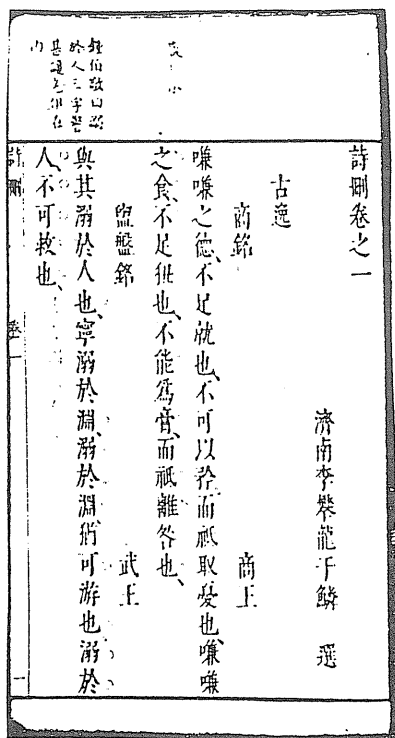 詩刪卷之一
濟南李攀龍于鱗 選
古逸
商銘 商王
嗛嗛之德、不足就也、不可以矜、而祗取憂也、嗛嗛
之食、不足狃也、不能爲膏、而祗離咎也、
盥盤銘 武王
與其溺於人也、寧溺於淵、溺於淵、猶可游也、溺於
人、不可救也、
鍾伯敬曰溺
於人三字
詩刪 卷一 一